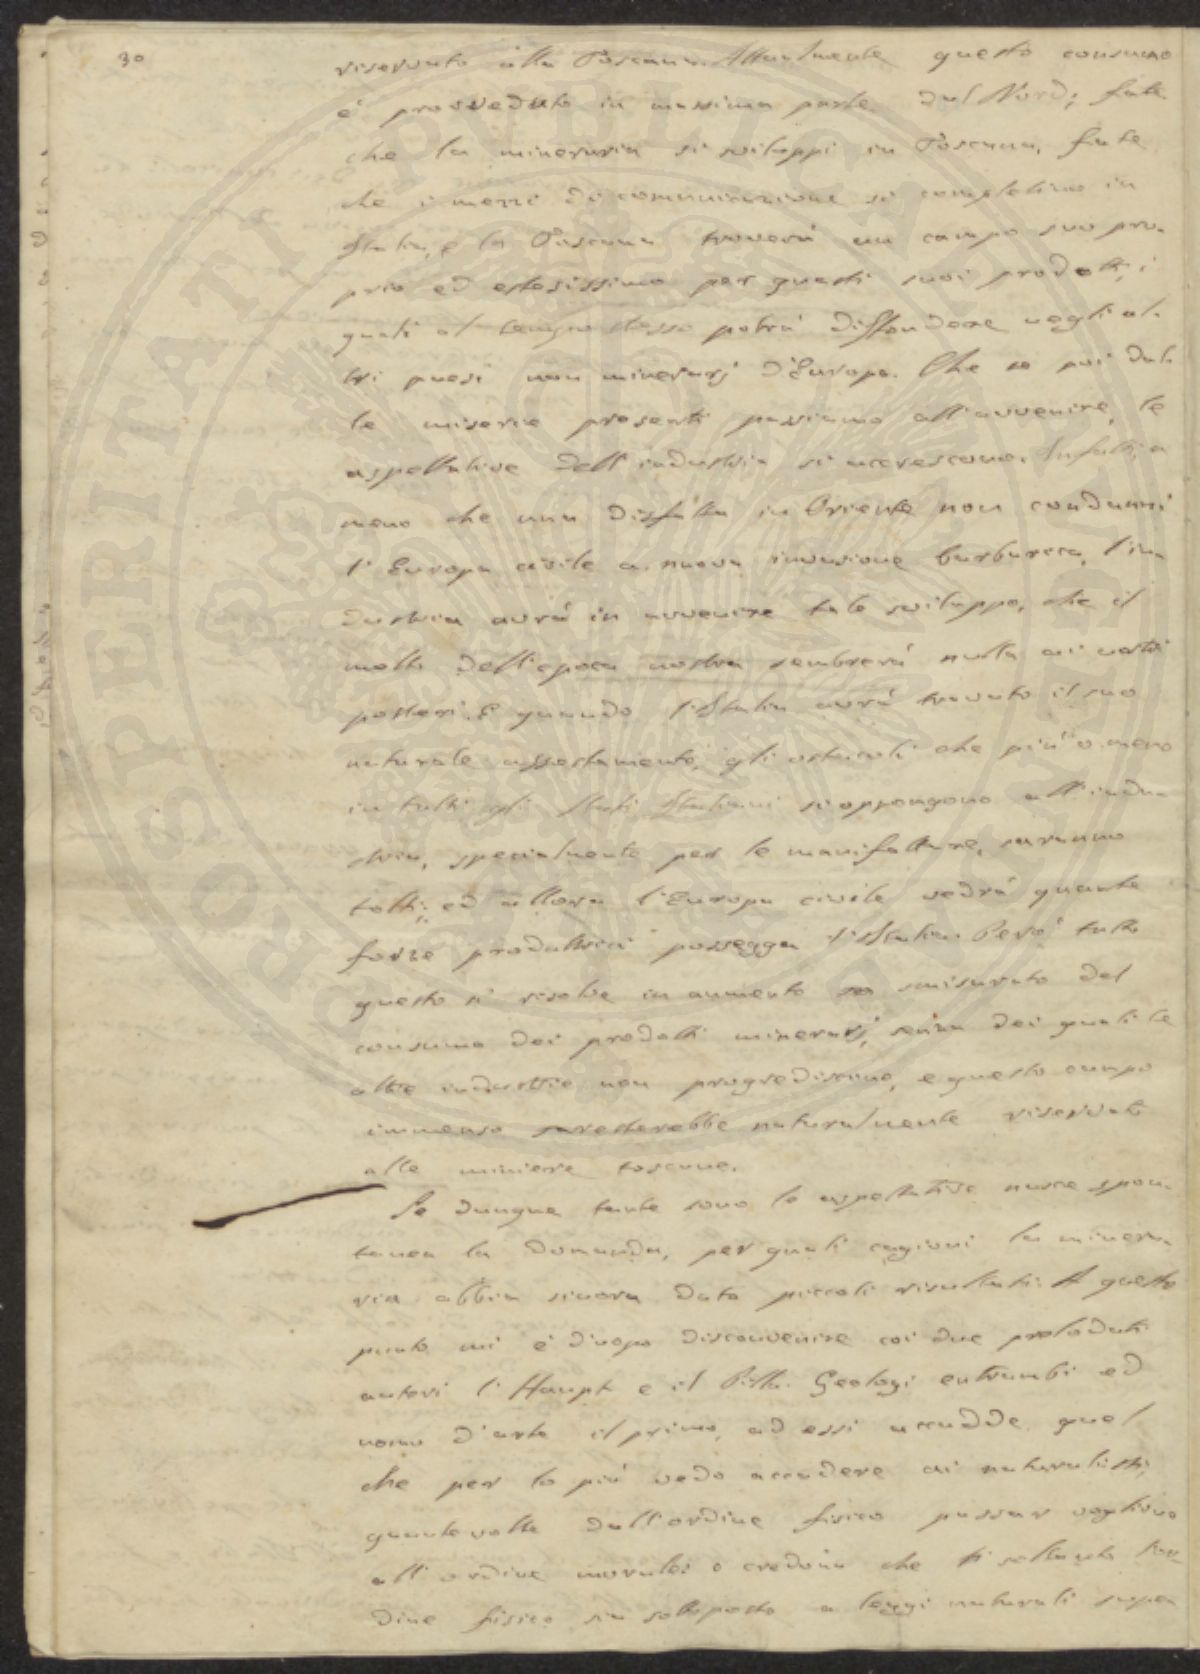 30
riservato alla Toscana. Attualmente questo consumo
è provveduto in massima parte dal Nord; fate
che la mineraria si sviluppi in Toscana, fate
che i mezzi di comunicazione si completino in
Italia, e la Toscana troverà un campo suo pro-
prio ed estesissimo per questi suoi prodotti, i
quali al tempo stesso potrà diffondere negli al-
tri paesi non minerarj d'Europa. Che se poi dal-
le miserie presenti passiamo all'avvenire, le
aspettative dell'industria si accrescono. Infatti, a
meno che una disfatta in Oriente non condanni
l'Europa civile a nuova invasione barbarica, l'in-
dustria avrà in avvenire tale sviluppo, che il
molto dell'epoca nostra sembrerà nulla ai nostri
posteri. E quando l'Italia avrà trovato il suo
naturale assestamento, gli ostacoli che più o meno
in tutti gli Stati Italiani si oppongono all'indu-
stria, specialmente per le manifatture, saranno
tolti; ed allora l'Europa civile vedrà quante
forze produttrici possegga l'Italia. Però tutto
questo si risolve in aumento smisurato del
consumo dei prodotti minerarj, senza dei quali le
altre industrie non progrediscono, e questo campo
immenso resterebbe naturalmente riservato
alle miniere toscane.
Se dunque tante sono le aspettative nasce spon-
tanea la domanda, per quali cagioni la minera-
ria abbia sinora dato piccoli risultati. A questo
punto mi è d'uopo disconvenire coi due prelodati
autori l'Haupt e il Pilla. Geologi entrambi ed
uomo d'arte il primo, ad essi accadde quel
che per lo più vedo accadere ai naturalisti,
quante volte dall'ordine fisico passar vogliono
all'ordine morale: o credono che soltanto l'or-
dine fisico sia sottoposto a leggi naturali
PROSPERITATI PUBLICAE